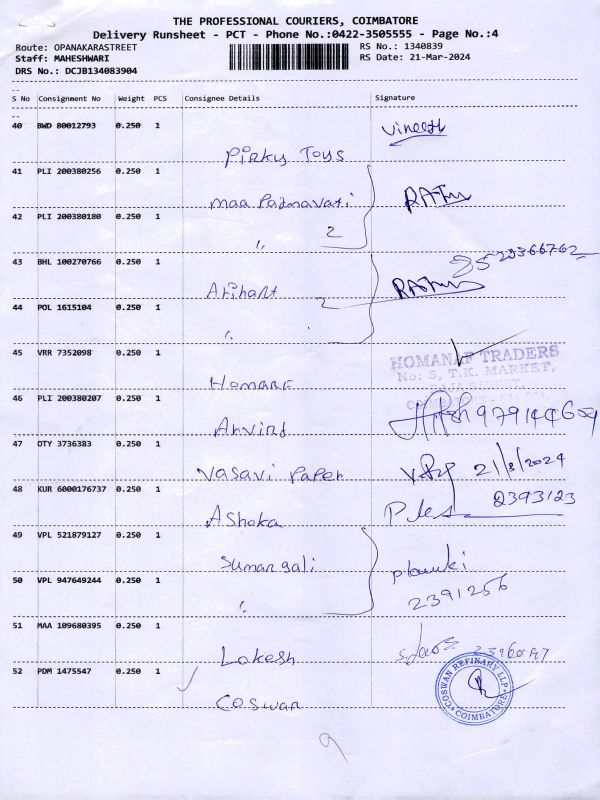 THE PROFESSIONAL COURIERS, COIMBATORE
Delivery Runsheet - PCT - Phone No.:0422-3505555 - Page No.:4
Route: OPANAKARASTREET
RS No.: 1340839
Staff: MAHESHWARI
RS Date: 21-Mar-2024
DRS No.: DCJB134083904
S No Consignment No Weight PCS Consignee Details Signature
40 BWD 80012793 0.250 1
Vineeth
Pinky Toys
41 PLI 200380256 0.250 1
Maa Padmavati
42 PLI 200380180 0.250 1
2
"
43 BHL 100270766 0.250 1
Arihant
44 POL 1615104 0.250 1
2
"
45 VRR 7352098 0.250 1
HOMANAF TRADERS
No: 5, T.K. MARKET,
Homanaf
46 PLI 200380207 0.250 1
Arvind
47 OTY 3736383 0.250 1
Vasavi Paper
21/3/2024
48 KUR 6000176737 0.250 1
2393123
Ashoka
49 VPL 521879127 0.250 1
Sumangali
50 VPL 947649244 0.250 1
2391256
"
51 MAA 109680395 0.250 1
Lokesh
52 PDM 1475547 0.250 1
COSWAN REFINARY LLP
COIMBATORE
Coswan
9